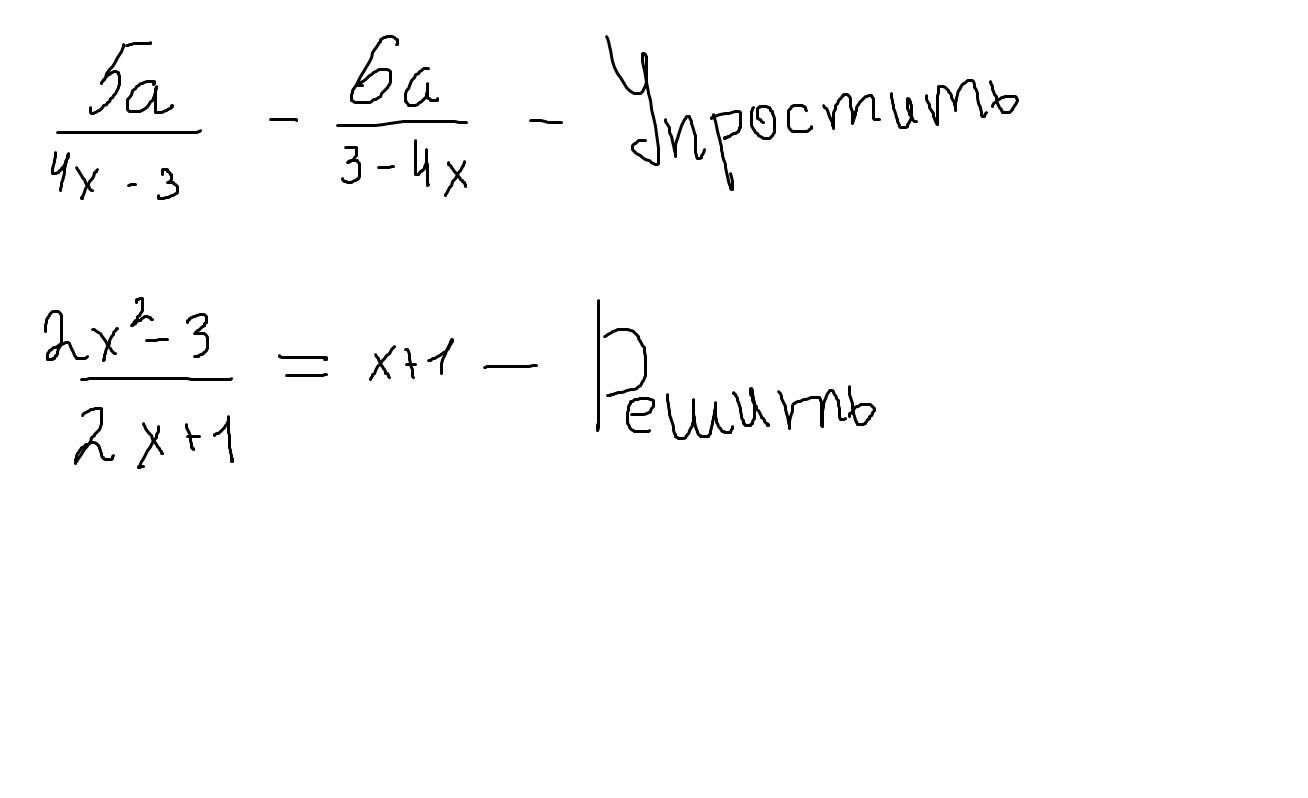 5a/(4x - 3) - 6a/(3 - 4x) - Упростить
(2x² - 3)/(2x + 1) = x + 1 - Решить